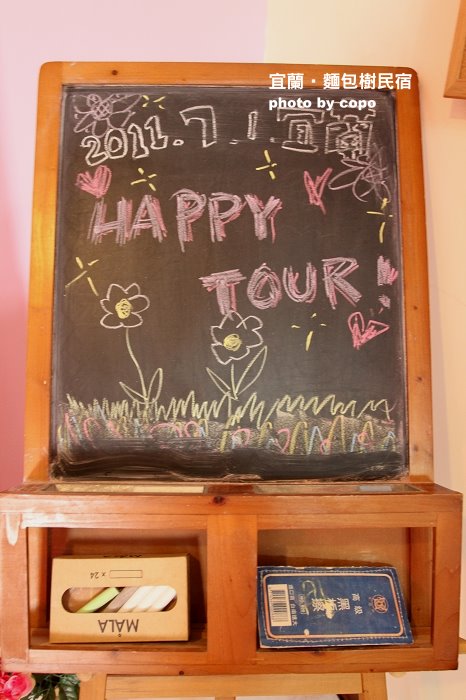 宜蘭・麵包樹民宿
photo by copo
2011.7.1.宜蘭
HAPPY
TOUR!
x 24
MÅLA
高級
黑板擦